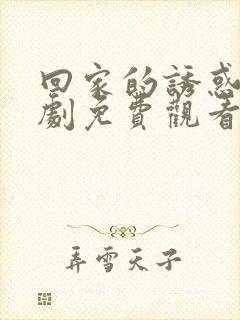 回家的誘惑
劇免費觀看
弄雪天子